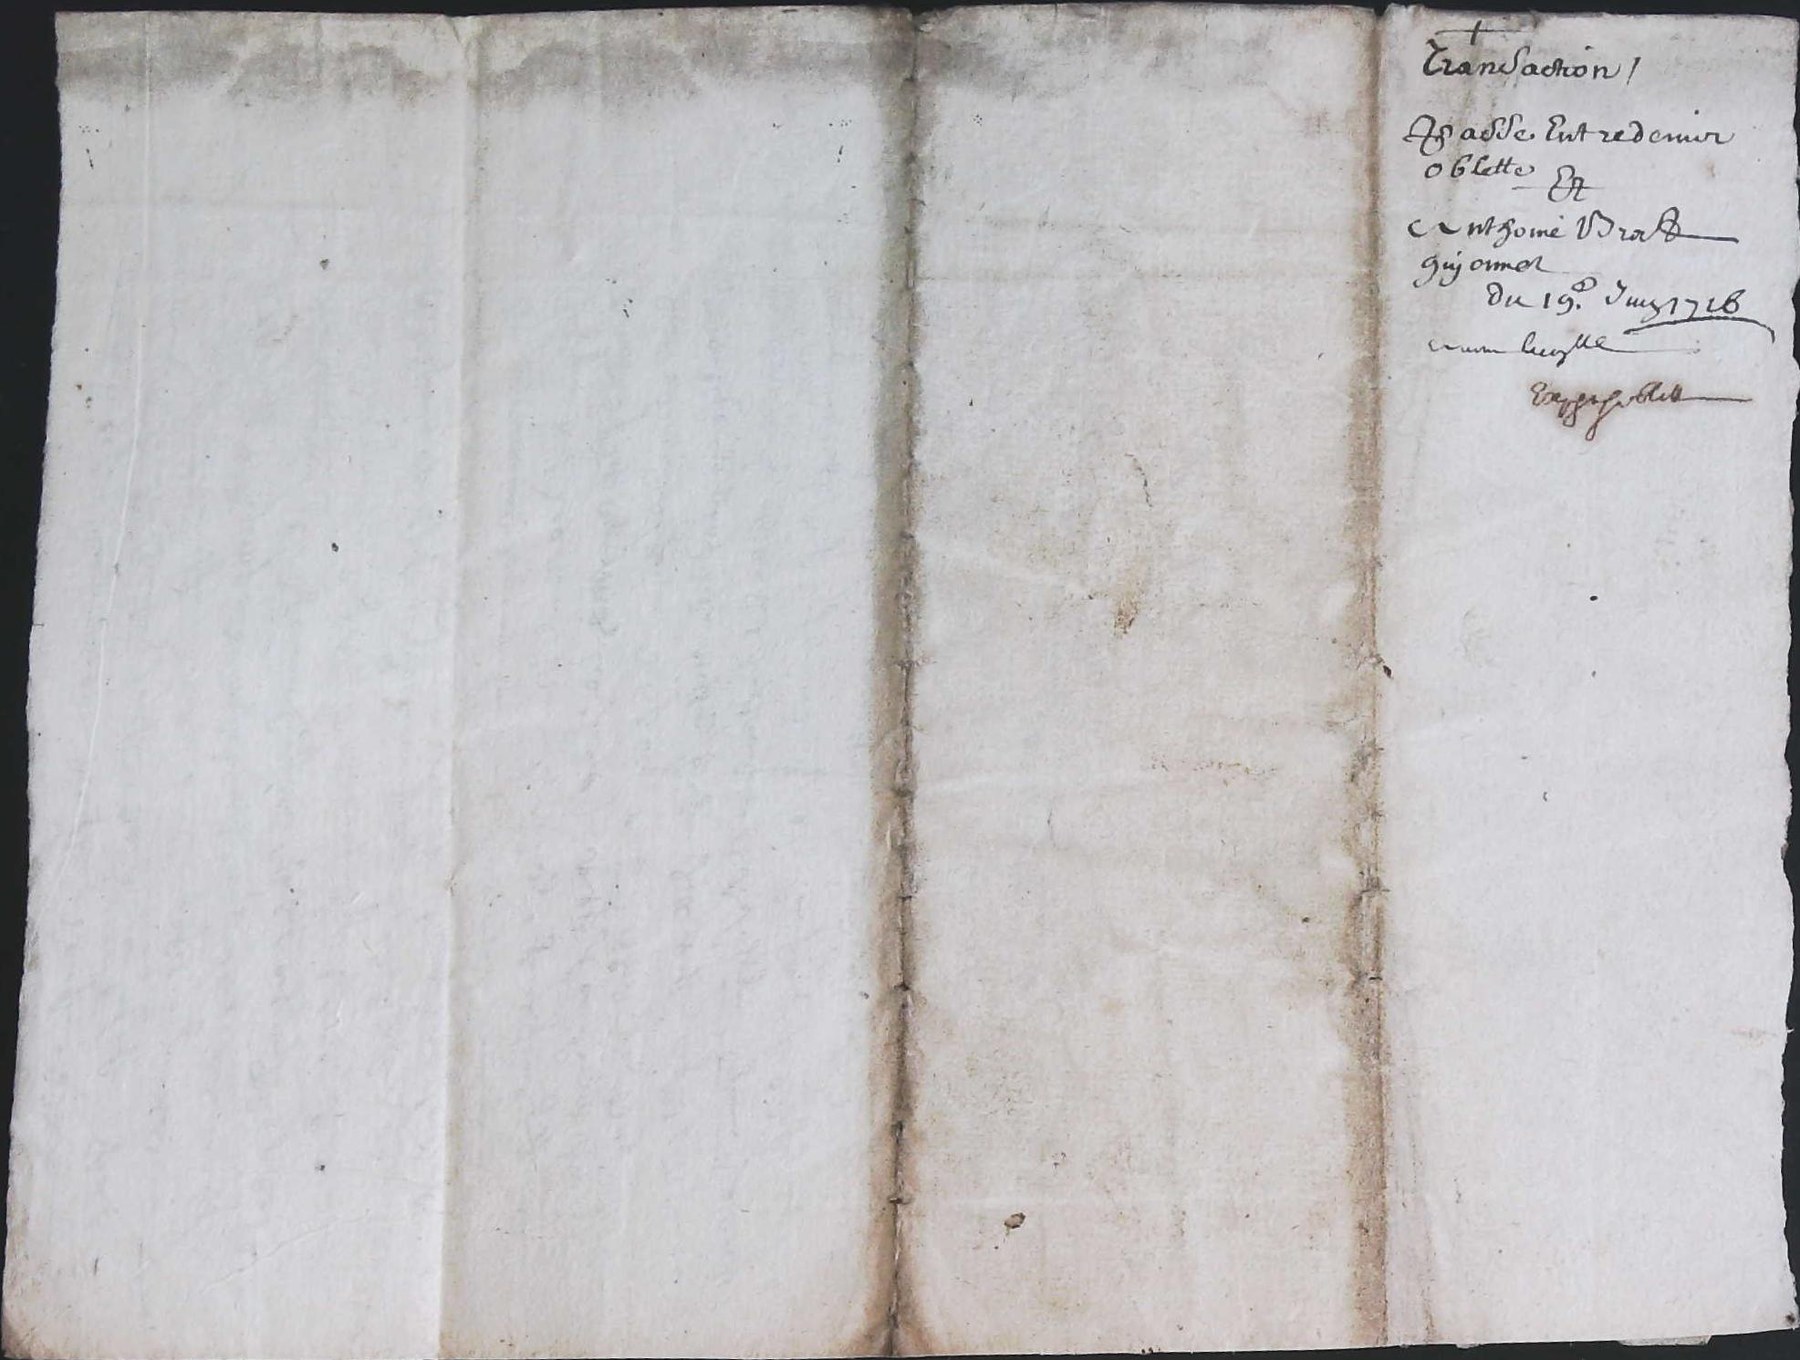 Transaction /
passée Entre denier
oblette Et
Anthoine Brat
guyonnet
du 19e Juin 1716